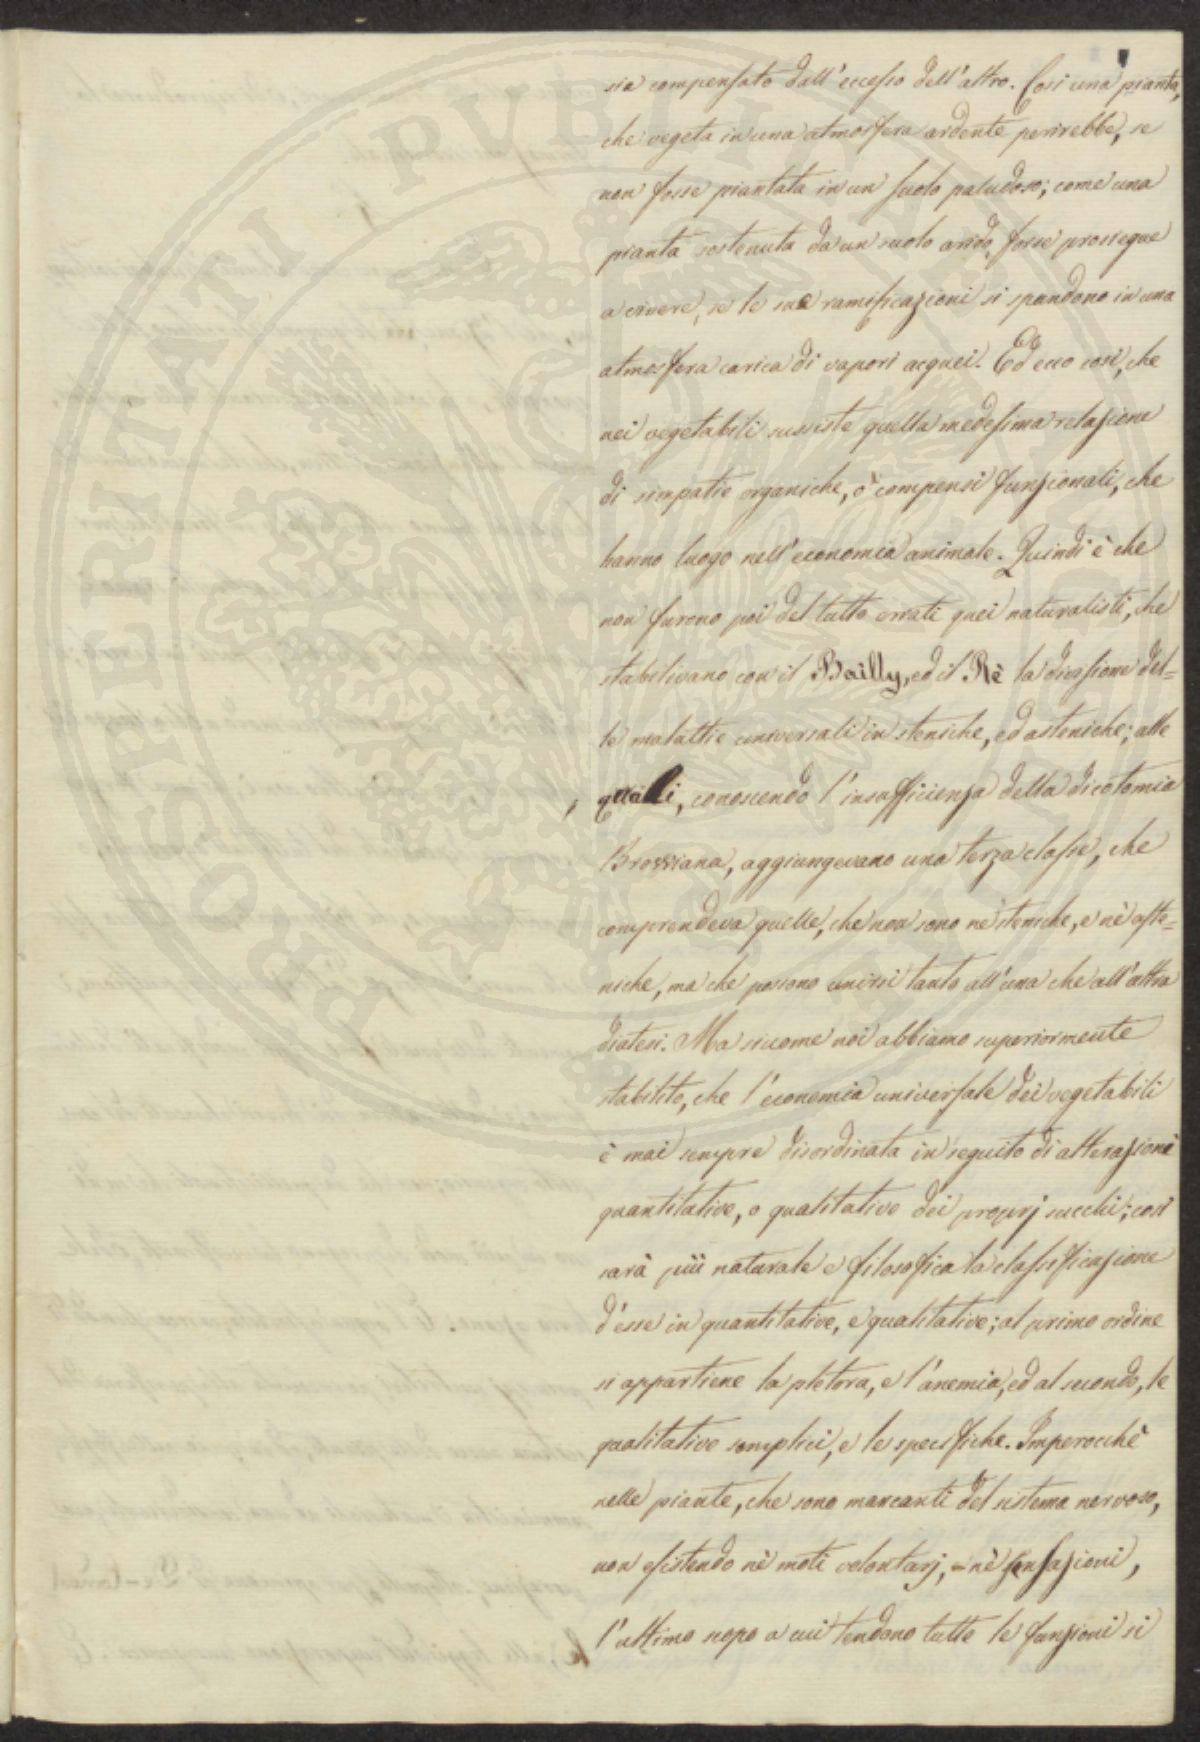 sia compensato dall'eccesso dell'altro. Così una pianta,
che vegeta in una atmosfera ardente perirebbe, se
non fosse piantata in un suolo paludoso; come una
pianta sostenuta da un suolo arido, forse prossegue
a vivere, se le sue ramificazioni si spandono in una
atmosfera carica di vapori acquei. Ed ecco così, che
nei vegetabili sussiste quella medesima relazione
di simpatie organiche, o compensi funzionali, che
hanno luogo nell'economia animale. Quindi è che
non furono poi del tutto errati quei naturalisti, che
stabilivano con il Bailly, ed il Rè la divisione del=
le malattie universali in steniche, ed asteniche; alle
quali, conoscendo l'insufficienza della dicotomia
Browiana, aggiungevano una terza classe, che
comprendeva quelle, che non sono nè steniche, e nè aste=
niche, ma che possono unirsi tanto all'una che all'altra
diatesi. Ma siccome noi abbiamo superiormente
stabilito, che l'economia universale dei vegetabili
è mai sempre disordinata in seguito di alterazioni
quantitative, o qualitative dei proprj succhi; così
sarà più naturale e filosofica la classificazione
d'esse in quantitative, e qualitative; al primo ordine
si appartiene la pletora, e l'anemia, ed al secondo, le
qualitative semplici, e le specifiche. Imperocchè
nelle piante, che sono mancanti del sistema nervoso,
non esistendo nè moti volontarj, nè sensazioni,
l'ultimo scopo a cui tendono tutte le funzioni si
PROSPERITATI PVBLICAE